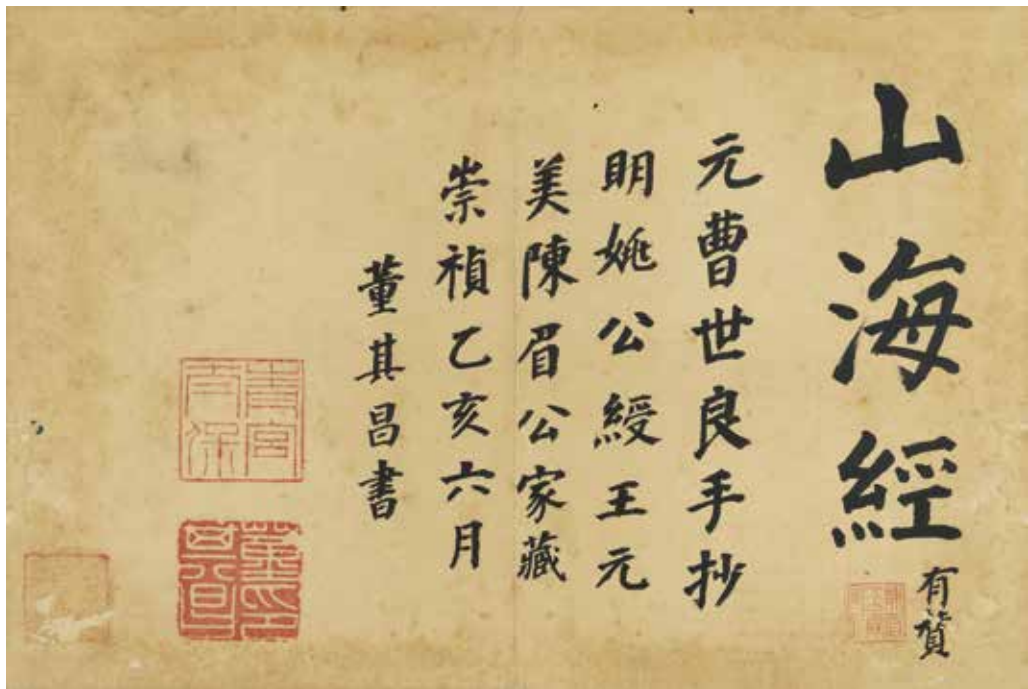 山海經
有贊
元曹世良手抄
明姚公綬王元
美陳眉公家藏
崇禎乙亥六月
董其昌書